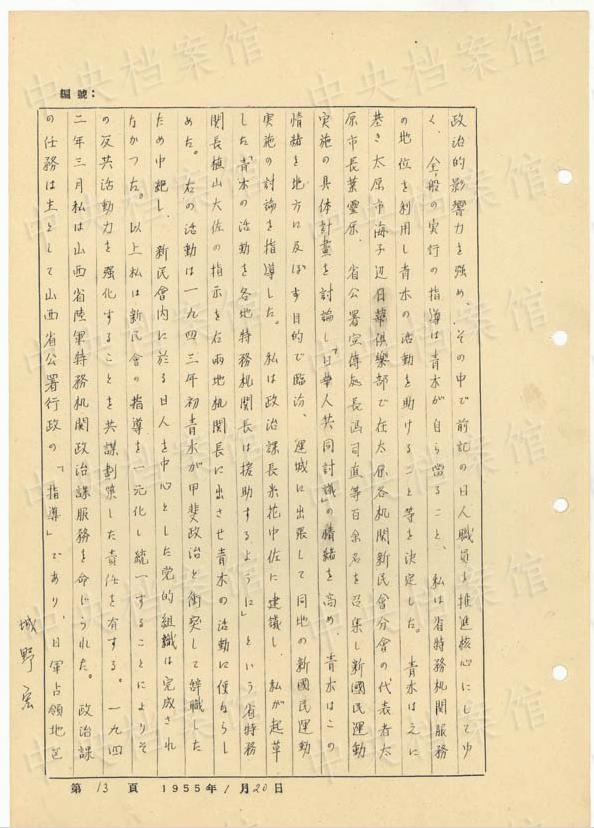 編號：
政治的影響力を強め、その中で前記の日人職員を推進核心にしてゆ
く、全般の実行の指導は青木が自ら當ること、私は省特務机関服務
の地位を利用し青木の活動を助けること等を決定した。青木は之に
基き太原市海子辺日華倶樂部で在太原各机関新民會分會の代表者太
原市長葉靈原、省公署宣傳処長馮司直等百余名を召集し新國民運動
実施の具体計畫を討論し「日華人共同討議」の情緒を高め、青木はこの
情緒を地方に及ぼす目的で臨汾、運城に出張して同地の新國民運動
実施の討論を指導した。私は政治課長米花中佐に建議し、私が起草
した「青木の活動を各地特務机関長は援助するように」という省特務
関長植山大佐の指示を右両地机関長に出させ青木の活動に便ならし
めた。右の活動は一九四三年初青木が甲斐政治と衝突して辞職した
ため中絶し、新民會内に於る日人を中心とした党的組織は完成され
なかった。以上私は新民會の指導を一元化し統一することによりそ
の反共活動力を強化することを共謀劃策した責任を有する。一九四
二年三月私は山西省陸軍特務机関政治課服務を命じられた。政治課
の任務は主として山西省公署行政の「指導」であり、日軍占領地区
城野宏
第 13 頁 1955年1月20日
中央档案馆